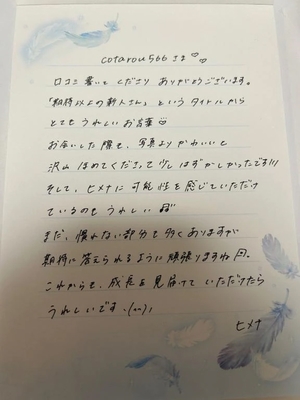 cotarou566さま♡♡
口コミ書いて くださり ありがとうございます。
「期待以上の新人さん」というタイトルから
とても うれしい お言葉♡
お会いした際も、写真より かわいいと
沢山 ほめてくださって 少しはずかしかったです!!!
そして、ヒメナに可能性を感じていただけ
ているのも うれしい
まだ、慣れない部分も多くありますが
期待に答えられるように頑張りますね
これからも、成長を見届けて いただけたら
うれしいです
ヒメナ